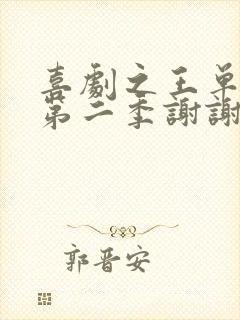 喜劇之王單
第二季謝謝
郭晋安